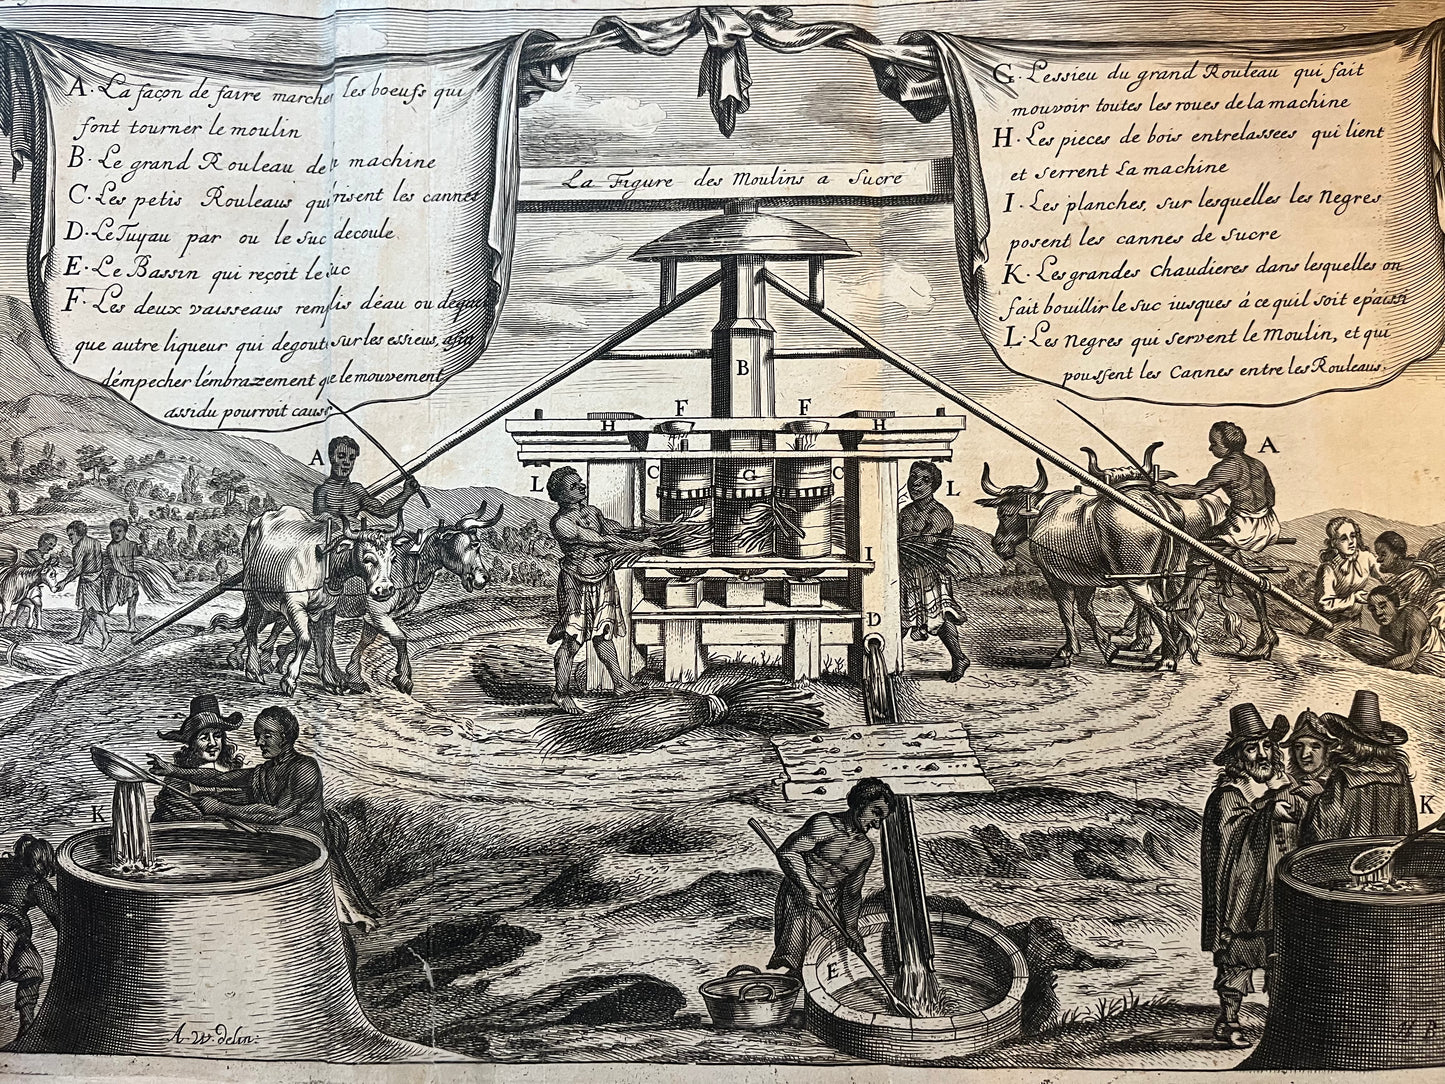 A. La façon de faire marcher les boeufs qui
font tourner le moulin
B. Le grand Rouleau de la machine
C. Les petis Rouleaus qui brisent les cannes
D. Le Tuyau par ou le suc decoule.
E. Le Bassin qui reçoit le suc
F. Les deux vaisseaus remplis déau ou de
que autre liqueur qui degout sur les essieus,
démpecher lémbrazement que le mouvement
assidu pourroit
La Figure des Moulins a Sucre
G. Lessieu du grand Rouleau qui fait
mouvoir toutes les roues de la machine
H. Les pieces de bois entrelassees qui lient
et serrent La machine
I. Les planches, sur lesquelles les Negres
posent les cannes de sucre
K. Les grandes chaudieres dans lesquelles on
fait bouillir le suc iusques á ce quil soit epaissi
L. Les Negres qui servent le Moulin, et qui
poussent les Cannes entre les Rouleaus.
B
F F
H H
A A
C G C
L L
I
D
K K
E
A. W. delin: